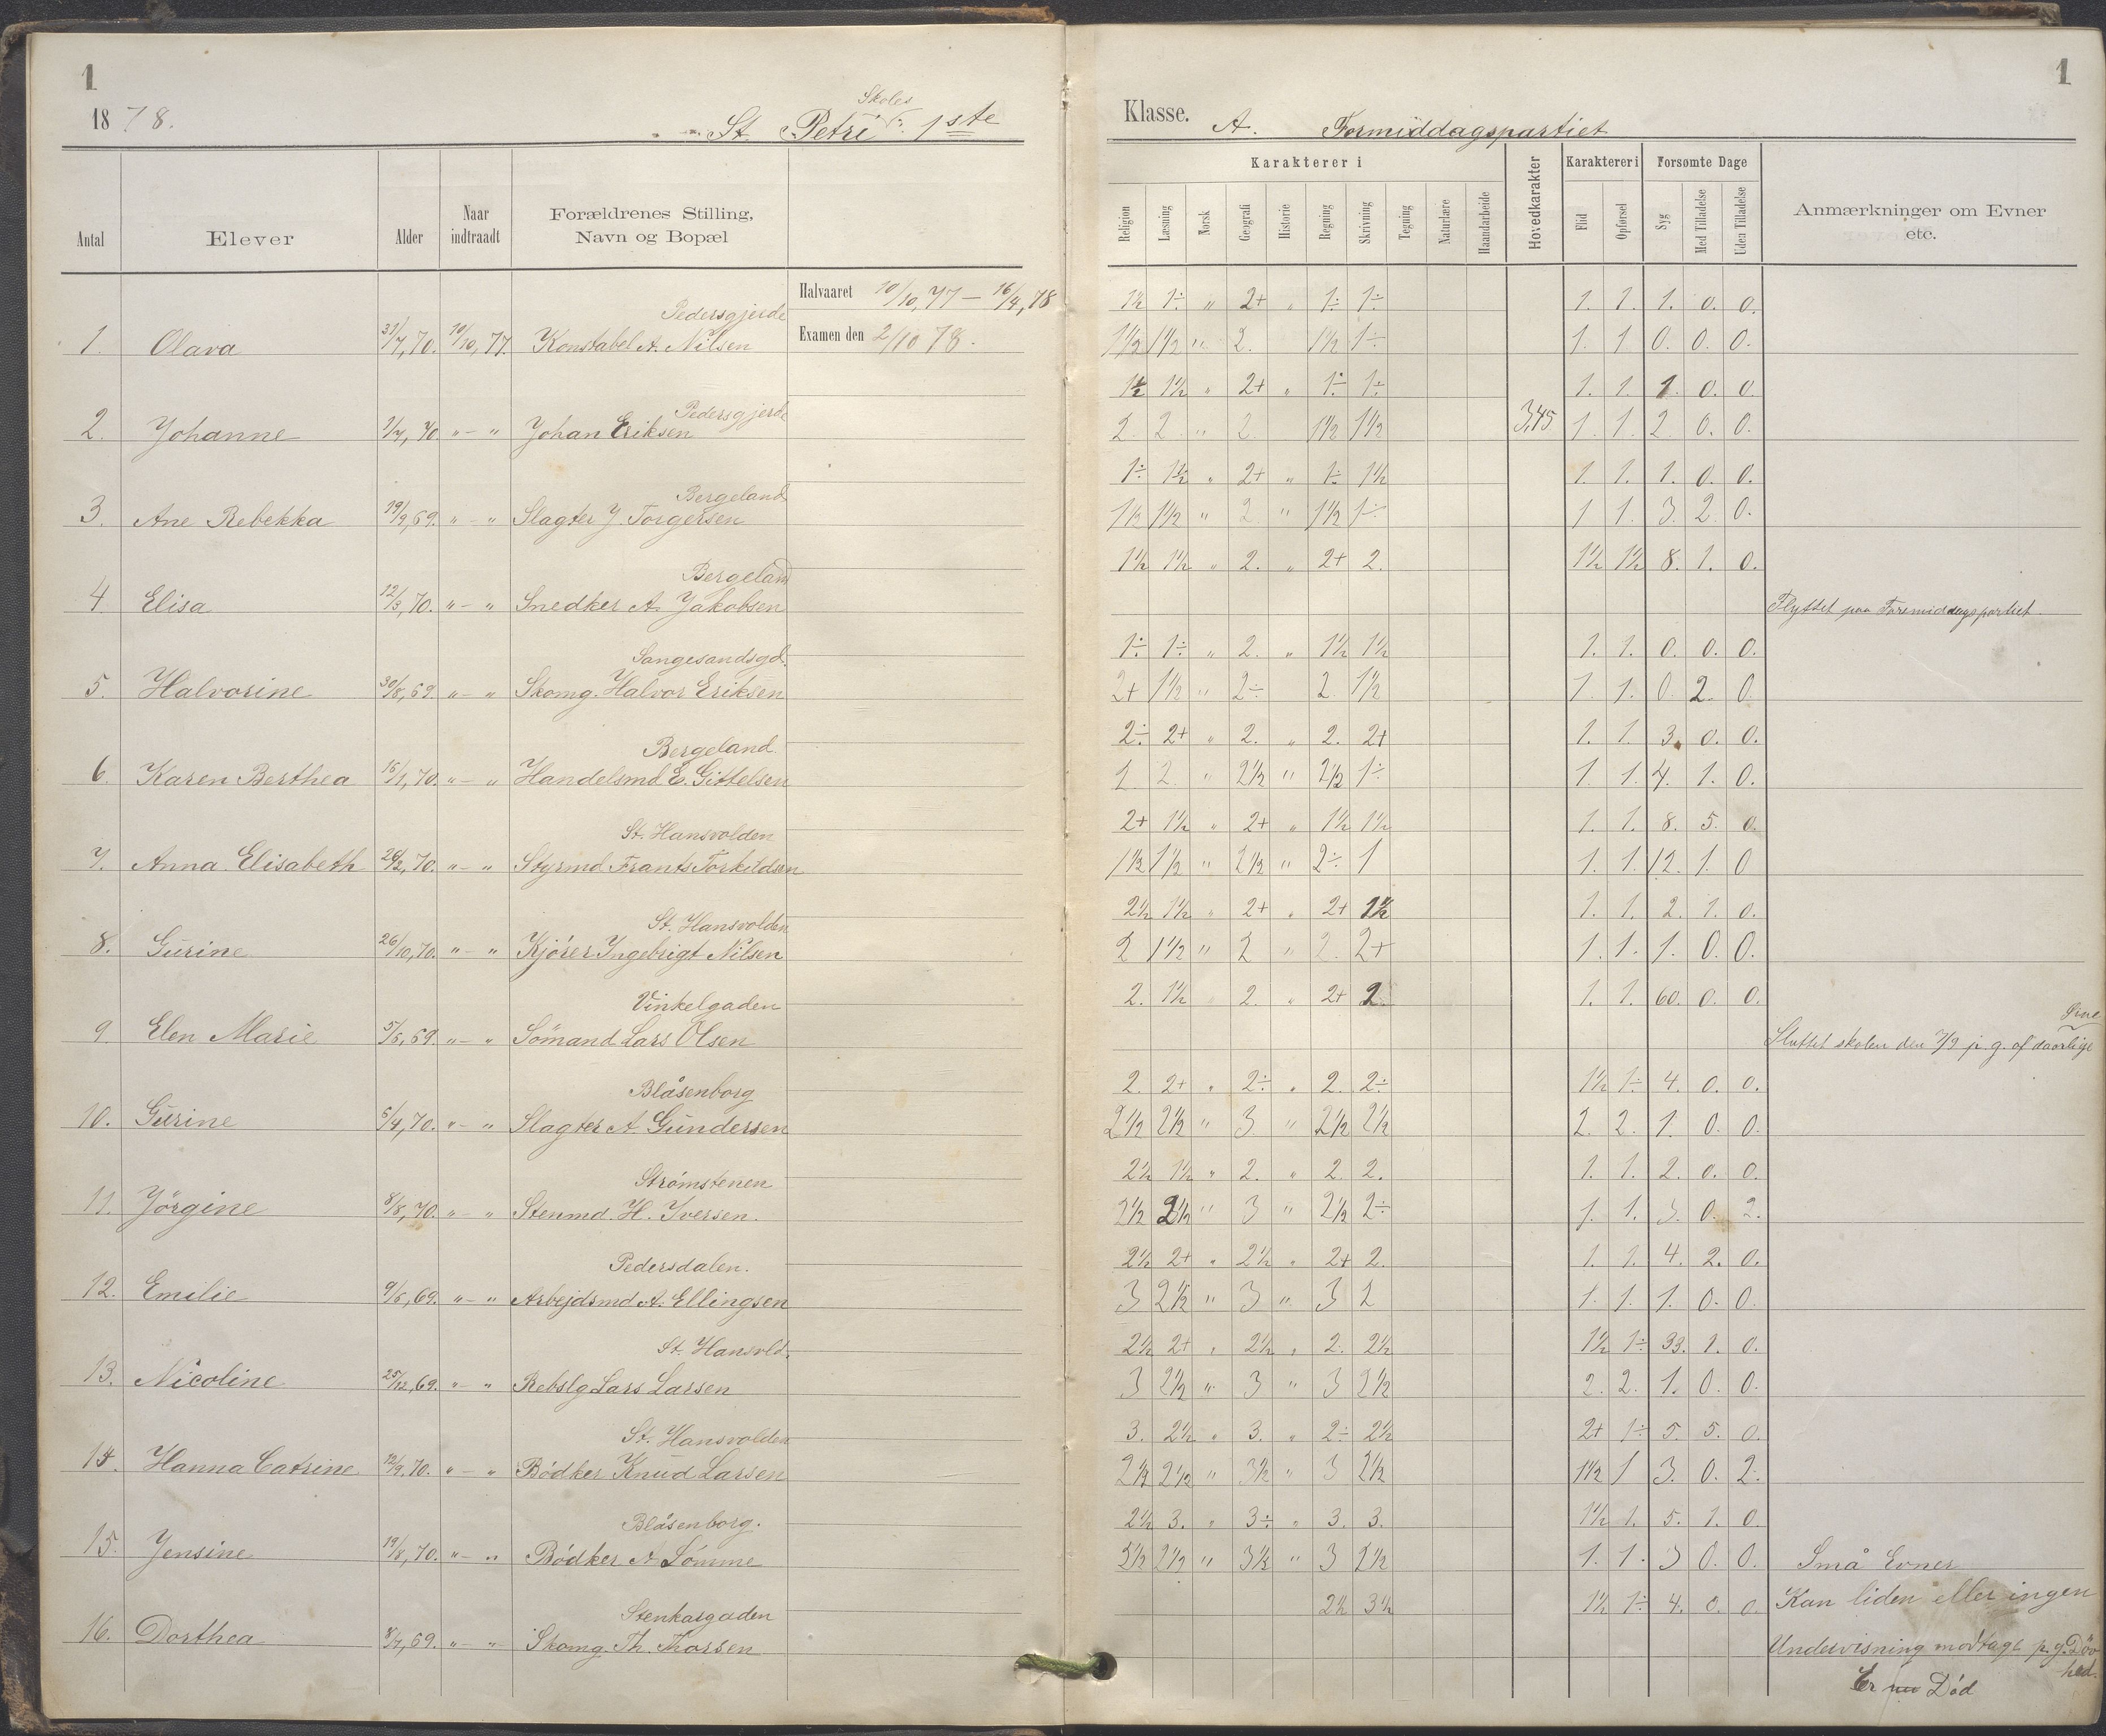 1
1878.
St. Petri Skoles 1ste
Antal
Elever
Alder
Naar indtraadt
Forældrenes Stilling, Navn og Bopæl
Halvaaret 10/10, 77 – 16/4, 78
Examen den 2/10 78.
Pedersgjerde
1. Olava 31/7, 70. 10/10, 77. Konstabel A. Nilsen
Pedersgjerde
2. Johanne 1/7, 70 " – " Johan Eriksen
Bergeland
3. Ane Rebekka 19/9, 69. " – " Slagter J. Torgersen
Bergeland
4. Elisa 12/3, 70. " – " Snedker A. Jakobsen
Sangesandsgd.
5. Halvorine 30/8, 69. " – " Skomg. Halvor Eriksen
Bergeland.
6. Karen Berthea 16/1, 70. " – " Handelsmd E. Gittelsen
St. Hansvolden
7. Anna Elisabeth 26/2, 70. " – " Styrmd Frants Torkildsen
St. Hansvolden
8. Gurine 26/10, 70. " – " Kjörer Ingebrigt Nilsen
Vinkelgaden
9. Elen Marie 5/6, 69. " – " Sömand Lars Olsen
Blåsenborg
10. Gurine 6/4, 70. " – " Slagter A. Gundersen
Strömstenen
11. Jörgine 8/8, 70. " – " Stenmd. H. Iversen.
Pedersdalen.
12. Emilie 9/6, 69. " – " Arbejdsmd A. Ellingsen
St. Hansvld.
13. Nicoline 25/12, 69. " – " Rebslg Lars Larsen
St. Hansvolden
14. Hanna Catrine 12/9, 70. " – " Bödker Knud Larsen
Blåsenborg.
15. Jensine 19/8, 70. " – " Bödker A. Lömme
Stenkargaden
16. Dorthea 8/7, 69. " – " Skomg. Th. Thorsen
1
Klasse. A. Formiddagspartiet
Karakterer i
Hovedkarakter
Karakterer i
Forsømte Dage
Anmærkninger om Evner etc.
Religion
Læsning
Norsk
Geografi
Historie
Regning
Skrivning
Tegning
Naturlære
Haandarbeide
Flid
Opførsel
Syg
Med Tilladelse
Uden Tilladelse
1½ 1÷ " 2+ " 1÷ 1÷ 1. 1. 1. 0. 0.
1½ 1½ " 2. 1½ 1÷ 1. 1 0. 0. 0.
1½ 1½ " 2+ " 1÷ 1÷ 1. 1. 1 0. 0.
2. 2 " 2. 1½ 1½ 3,45 1 1. 2 0. 0.
1÷ 1½ " 2+ " 1÷ 1½ 1. 1. 1. 0. 0.
1½ 1½ " 2 " 1½ 1÷ 1 1. 3 2 0.
1½ 1½ " 2. " 2+ 2. 1½ 1½ 8. 1. 0.
Flyttet paa Formiddagspartiet.
1÷ 1÷ " 2. " 1½ 1½ 1. 1. 0. 0. 0.
2+ 1½ " 2÷ 2. 1½ 1. 1. 0. 2. 0.
2÷ 2+ " 2. " 2. 2+ 1. 1. 3. 0. 0.
2 2. " 2½ " 2½ 1÷ 1. 1. 4. 1. 0.
2+ 1½ " 2+ " 1½ 1½ 1. 1. 8. 5. 0.
1½ 1½ " 2½ " 2÷ 1 1. 1. 12. 1. 0
2½ 1½ " 2+ " 2+ 1½ 1. 1. 2. 1. 0.
2 1½ " 2 " 2. 2+ 1. 1. 1. 0 0.
2. 1½ 2. " 2+ 2. 1. 1. 60. 0. 0.
Sluttet skolen den 7/9 p. g. af daarlige
2. 2+ " 2÷ " 2. 2÷ 1½ 1÷ 4. 0. 0.
2½ 2½ " 3 " 2½ 2½ 2. 2. 1. 0. 0.
2½ 1½ " 2. " 2. 2. 1. 1. 2. 0. 0.
2½ 2½ " 3 " 2½ 2÷ 1. 1. 3. 0. 2.
2½ 2+ " 2½ " 2+ 2. 1. 1. 4. 2. 0.
3 2½ " 3 " 3 2 1. 1. 1. 0. 0.
2½ 2+ " 2½ " 2. 2½ 1½ 1÷ 33. 1. 0.
3 2½ " 3 " 3 2½ 2. 2. 1. 0. 0.
3. 2½ " 3. " 2÷ 2½ 2+ 1÷ 5. 5. 0.
2½ 2½ " 3½ " 3 2½ 1½ 1 3. 0. 2.
2½ 3. " 3÷ " 3. 3. 1½ 1. 5. 1. 0.
2½ 2½ " 3½ " 3 2½ 1. 1. 3 0. 0. Små Evner
2½ 3½ 1½ 1÷ 4. 0. 0. Kan liden eller ingen
Undervisning modtage p. g. Döv
hed.
Er nu Död